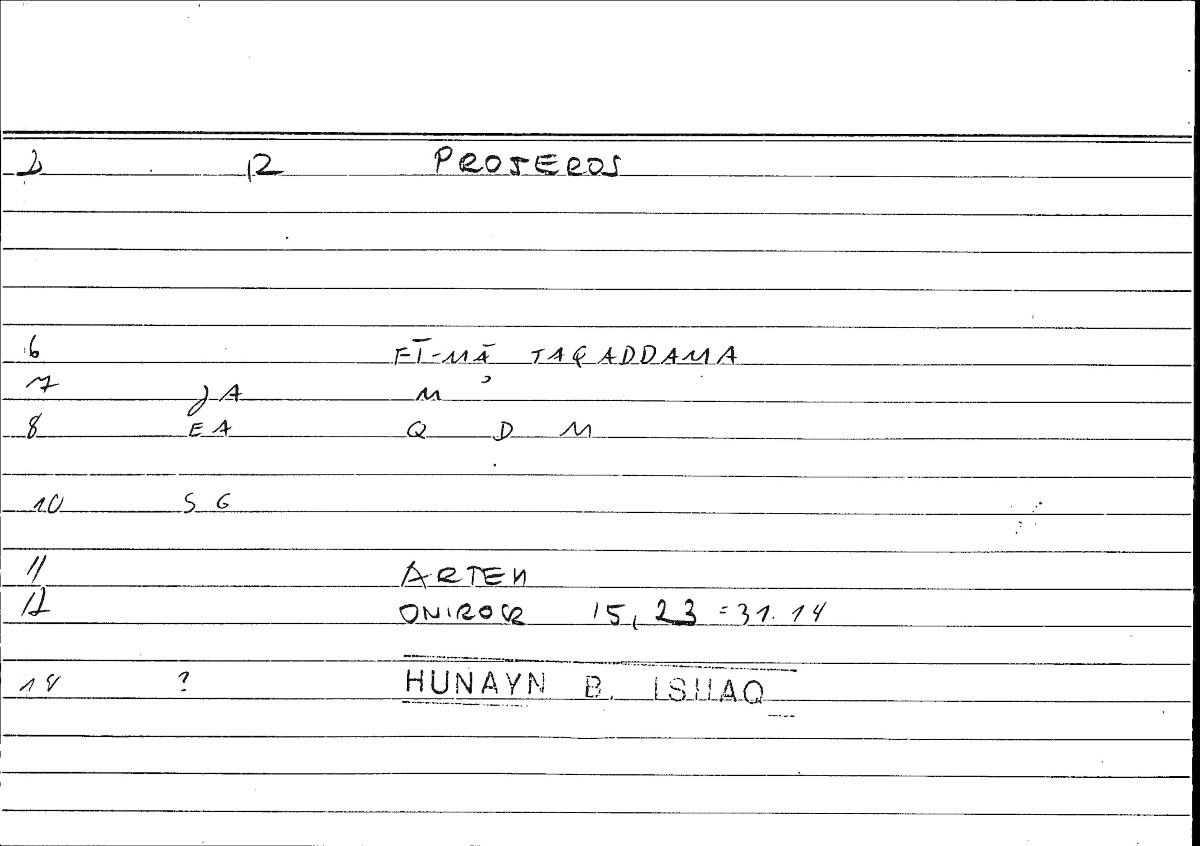 2 12 PROTEROS
6 FĪ-MĀ TAQADDAMA
7 JA M
8 EA Q D M
10 SG
11 ARTEM
12 ONIROCR 15, 23 = 31.14
14 ? HUNAYN B. ISHAQ